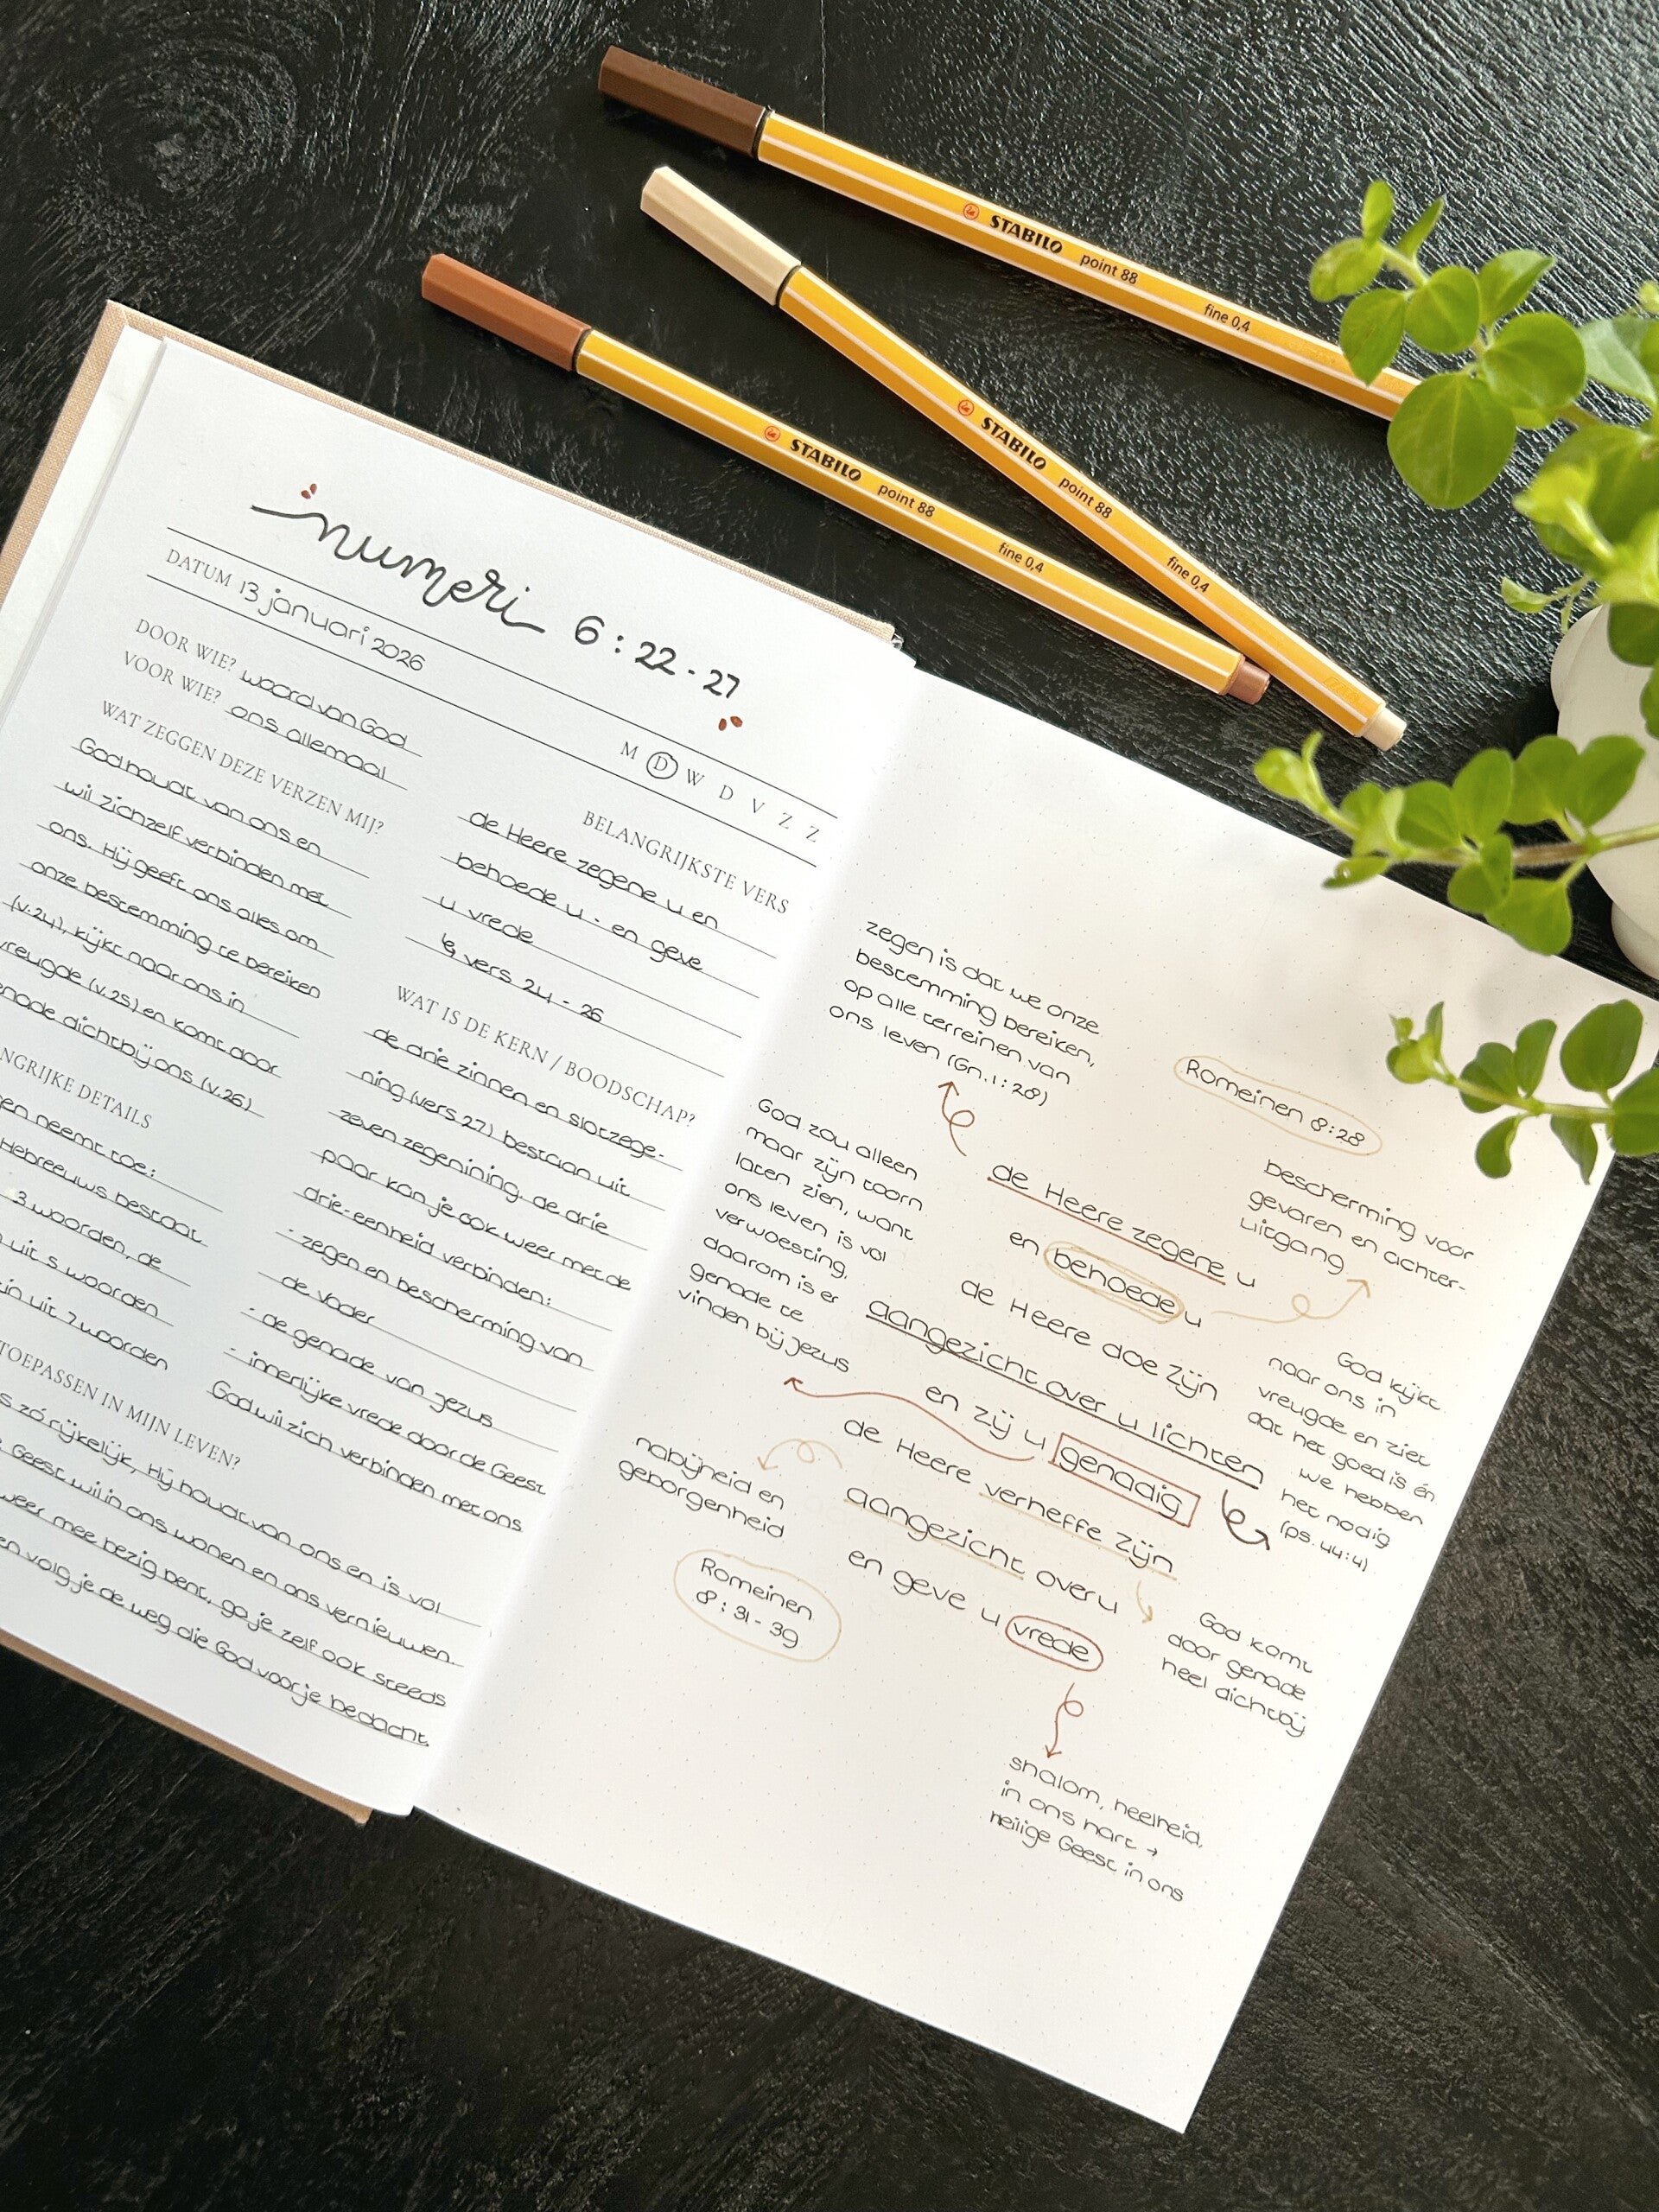 STABILO point 88 fine 0,4
STABILO point 88 fine 0,4
STABILO point 88 fine 0,4
numeri 6 : 22 - 27
DATUM 13 januari 2026
M D W D V Z Z
DOOR WIE? woord van God
VOOR WIE? ons allemaal
WAT ZEGGEN DEZE VERZEN MIJ?
God houdt van ons en
wil zichzelf verbinden met
ons. Hij geeft ons alles om
onze bestemming te bereiken
(v.24), kijkt naar ons in
vreugde (v.25) en komt door
genade dichtbij ons (v.26)
NGRIJKE DETAILS
en neemt toe:
Hebreeuws bestaat
3 woorden, de
uit 5 woorden
in uit 7 woorden
TOEPASSEN IN MIJN LEVEN?
s zó rijkelijk, Hij houdt van ons en is vol
Geest wil in ons wonen en ons vernieuwen.
weer mee bezig bent, ga je zelf ook steeds
en volg je de weg die God voor je bedacht
BELANGRIJKSTE VERS
de Heere zegene u en
behoede u - en geve
u vrede
↳ vers 24 - 26
WAT IS DE KERN / BOODSCHAP?
de drie zinnen en slotzege-
ning (vers 27) bestaan uit
zeven zegenining. de drie
paar kan je ook weer met de
drie-eenheid verbinden:
- zegen en bescherming van
de Vader
- de genade van Jezus
- innerlijke vrede door de Geest
God wil zich verbinden met ons
zegen is dat we onze
bestemming bereiken,
op alle terreinen van
ons leven (Gn. 1 : 28)
Romeinen 8:28
bescherming voor
gevaren en achter-
uitgang
God zou alleen
maar zijn toorn
laten zien, want
ons leven is vol
verwoesting,
daarom is er
genade te
vinden bij Jezus
de Heere zegene u
en behoede u
de Heere doe Zijn
aangezicht over u lichten
en zij u genadig
de Heere verheffe Zijn
aangezicht over u
en geve u vrede
God kijkt
naar ons in
vreugde en ziet
dat het goed is én
we hebben
het nodig
(ps. 44:4)
nabijheid en
geborgenheid
Romeinen
8 : 31 - 39
God komt
door genade
heel dichtbij
shalom, heelheid,
in ons hart →
Heilige Geest in ons